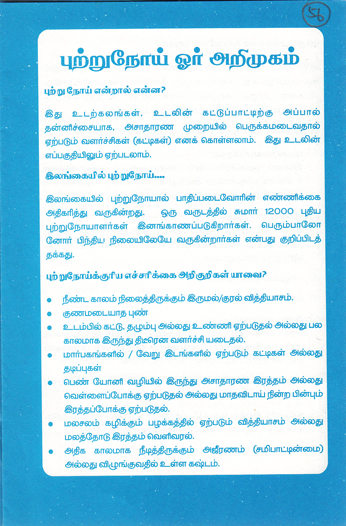 56
புற்றுநோய் ஓர் அறிமுகம்
புற்றுநோய் என்றால் என்ன?
இது உடற்கலங்கள், உடலின் கட்டுப்பாட்டிற்கு அப்பால்
தன்னிச்சையாக, அசாதாரண முறையில் பெருக்கமடைவதால்
ஏற்படும் வளர்ச்சிகள் (கட்டிகள்) எனக் கொள்ளலாம். இது உடலின்
எப்பகுதியிலும் ஏற்படலாம்.
இலங்கையில் புற்றுநோய்....
இலங்கையில் புற்றுநோயால் பாதிப்படைவோரின் எண்ணிக்கை
அதிகரித்து வருகின்றது. ஒரு வருடத்தில் சுமார் 12000 புதிய
புற்றுநோயாளர்கள் இனங்காணப்படுகிறார்கள். பெரும்பாலோ
னோர் பிந்திய நிலையிலேயே வருகின்றார்கள் என்பது குறிப்பிடத்
தக்கது.
புற்றுநோய்க்குரிய எச்சரிக்கை அறிகுறிகள் யாவை?
• நீண்ட காலம் நிலைத்திருக்கும் இருமல்/குரல் வித்தியாசம்.
• குணமடையாத புண்
• உடம்பில் கட்டு, தழும்பு அல்லது உண்ணி ஏற்படுதல் அல்லது பல
காலமாக இருந்து திடீரென வளர்ச்சி யடைதல்.
• மார்பகங்களில் / வேறு இடங்களில் ஏற்படும் கட்டிகள் அல்லது
தடிப்புகள்
• பெண் யோனி வழியில் இருந்து அசாதாரண இரத்தம் அல்லது
வெள்ளைப்போக்கு ஏற்படுதல் அல்லது மாதவிடாய் நின்ற பின்பும்
இரத்தப்போக்கு ஏற்படுதல்.
• மலசலம் கழிக்கும் பழக்கத்தில் ஏற்படும் வித்தியாசம் அல்லது
மலத்தோடு இரத்தம் வெளிவரல்.
• அதிக காலமாக நீடித்திருக்கும் அஜீரணம் (சமிபாட்டின்மை)
அல்லது விழுங்குவதில் உள்ள கஷ்டம்.